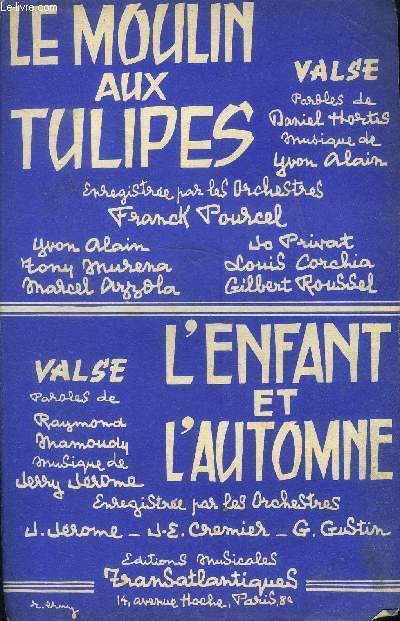 Le-livre.com
LE MOULIN
AUX
TULIPES
VALSE
Paroles de
Daniel Hortis
Musique de
Yvon Alain
Enregistrée par les Orchestres
Franck Pourcel
Yvon Alain
Tony Murena
Marcel Azzola
Jo Privat
Louis Corchia
Gilbert Roussel
L'ENFANT
ET
L'AUTOMNE
VALSE
Paroles de
Raymond
Mamoudy
Musique de
Jerry Jérome
Enregistrée par les Orchestres
J. Jérome _ J-E. Cremier _ G. Gustin
Editions Musicales
Transatlantiques
14, avenue Hoche, Paris, 8e